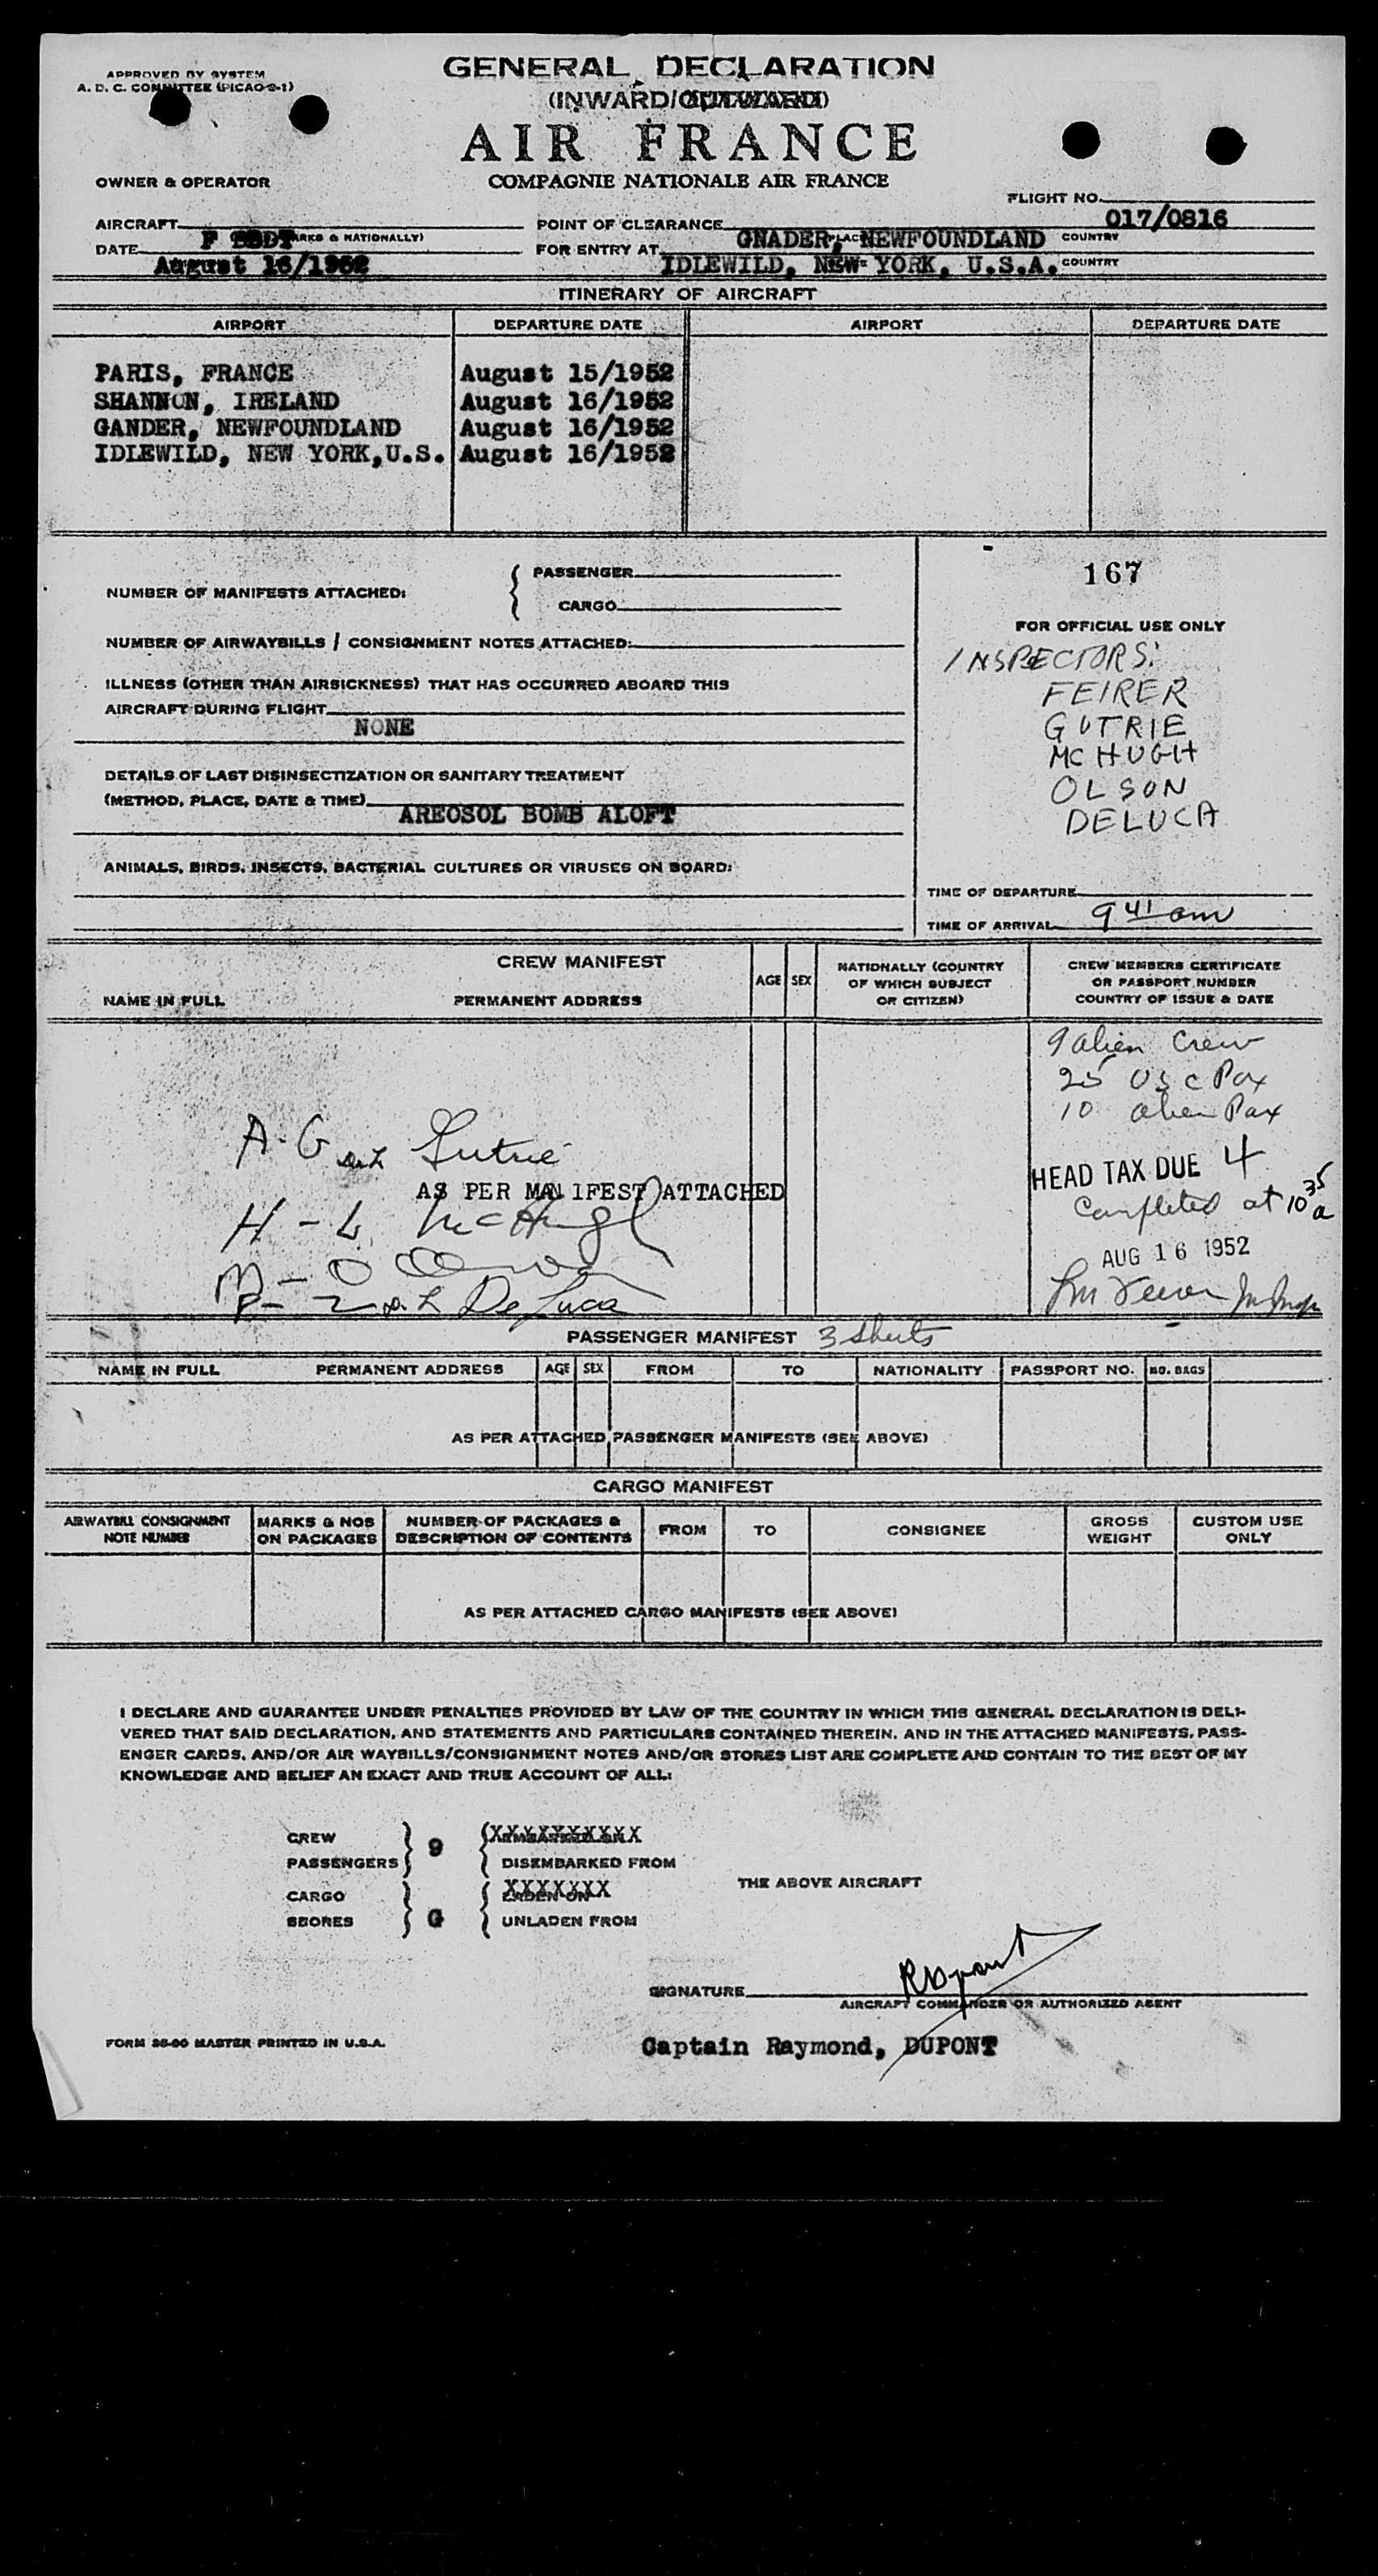 APPROVED BY SYSTEM
A. D. C. COMMITTEE (PICAO 2-1)
GENERAL DECLARATION
(INWARD/OUTWARD)
AIR FRANCE
COMPAGNIE NATIONALE AIR FRANCE
OWNER & OPERATOR
FLIGHT NO. 017/0816
AIRCRAFT F (MARKS & NATIONALLY)
POINT OF CLEARANCE GNADER, NEWFOUNDLAND COUNTRY
DATE August 16/1952
FOR ENTRY AT IDLEWILD, NEW YORK, U.S.A. COUNTRY
ITINERARY OF AIRCRAFT
AIRPORT DEPARTURE DATE AIRPORT DEPARTURE DATE
PARIS, FRANCE August 15/1952
SHANNON, IRELAND August 16/1952
GANDER, NEWFOUNDLAND August 16/1952
IDLEWILD, NEW YORK,U.S. August 16/1952
NUMBER OF MANIFESTS ATTACHED:
PASSENGER
CARGO
NUMBER OF AIRWAYBILLS / CONSIGNMENT NOTES ATTACHED:
ILLNESS (OTHER THAN AIRSICKNESS) THAT HAS OCCURRED ABOARD THIS
AIRCRAFT DURING FLIGHT
NONE
DETAILS OF LAST DISINSECTIZATION OR SANITARY TREATMENT
(METHOD, PLACE, DATE & TIME)
AREOSOL BOMB ALOFT
ANIMALS, BIRDS, INSECTS, BACTERIAL CULTURES OR VIRUSES ON BOARD:
167
FOR OFFICIAL USE ONLY
INSPECTORS:
FEIRER
GUTRIE
MCHUGH
OLSON
DELUCA
TIME OF DEPARTURE
TIME OF ARRIVAL 9 41 am
CREW MANIFEST
NAME IN FULL PERMANENT ADDRESS AGE SEX
NATIONALLY (COUNTRY
OF WHICH SUBJECT
OR CITIZEN)
CREW MEMBERS CERTIFICATE
OR PASSPORT NUMBER
COUNTRY OF ISSUE & DATE
9 alien Crew
25 USC Pax
10 alien Pax
A-G Gutrie
AS PER MANIFEST ATTACHED
H-L McHugh
De Luca
HEAD TAX DUE 4
Completed at 10 35 a
AUG 16 1952
PASSENGER MANIFEST 3 sheets
NAME IN FULL PERMANENT ADDRESS AGE SEX FROM TO NATIONALITY PASSPORT NO. NO. BAGS
AS PER ATTACHED PASSENGER MANIFESTS (SEE ABOVE)
CARGO MANIFEST
AIRWAYBILL CONSIGNMENT
NOTE NUMBER
MARKS & NOS
ON PACKAGES
NUMBER OF PACKAGES &
DESCRIPTION OF CONTENTS
FROM TO CONSIGNEE
GROSS
WEIGHT
CUSTOM USE
ONLY
AS PER ATTACHED CARGO MANIFESTS (SEE ABOVE)
I DECLARE AND GUARANTEE UNDER PENALTIES PROVIDED BY LAW OF THE COUNTRY IN WHICH THIS GENERAL DECLARATION IS DELI-
VERED THAT SAID DECLARATION, AND STATEMENTS AND PARTICULARS CONTAINED THEREIN. AND IN THE ATTACHED MANIFESTS, PASS-
ENGER CARDS, AND/OR AIR WAYBILLS/CONSIGNMENT NOTES AND/OR STORES LIST ARE COMPLETE AND CONTAIN TO THE BEST OF MY
KNOWLEDGE AND BELIEF AN EXACT AND TRUE ACCOUNT OF ALL:
CREW XXXXXXXXXX
PASSENGERS 9 DISEMBARKED FROM
THE ABOVE AIRCRAFT
CARGO XXXXXXX
SEORES G UNLADEN FROM
SIGNATURE RDupont
AIRCRAFT COMMANDER OR AUTHORIZED AGENT
FORM 26-00 MASTER PRINTED IN U.S.A.
Captain Raymond, DUPONT